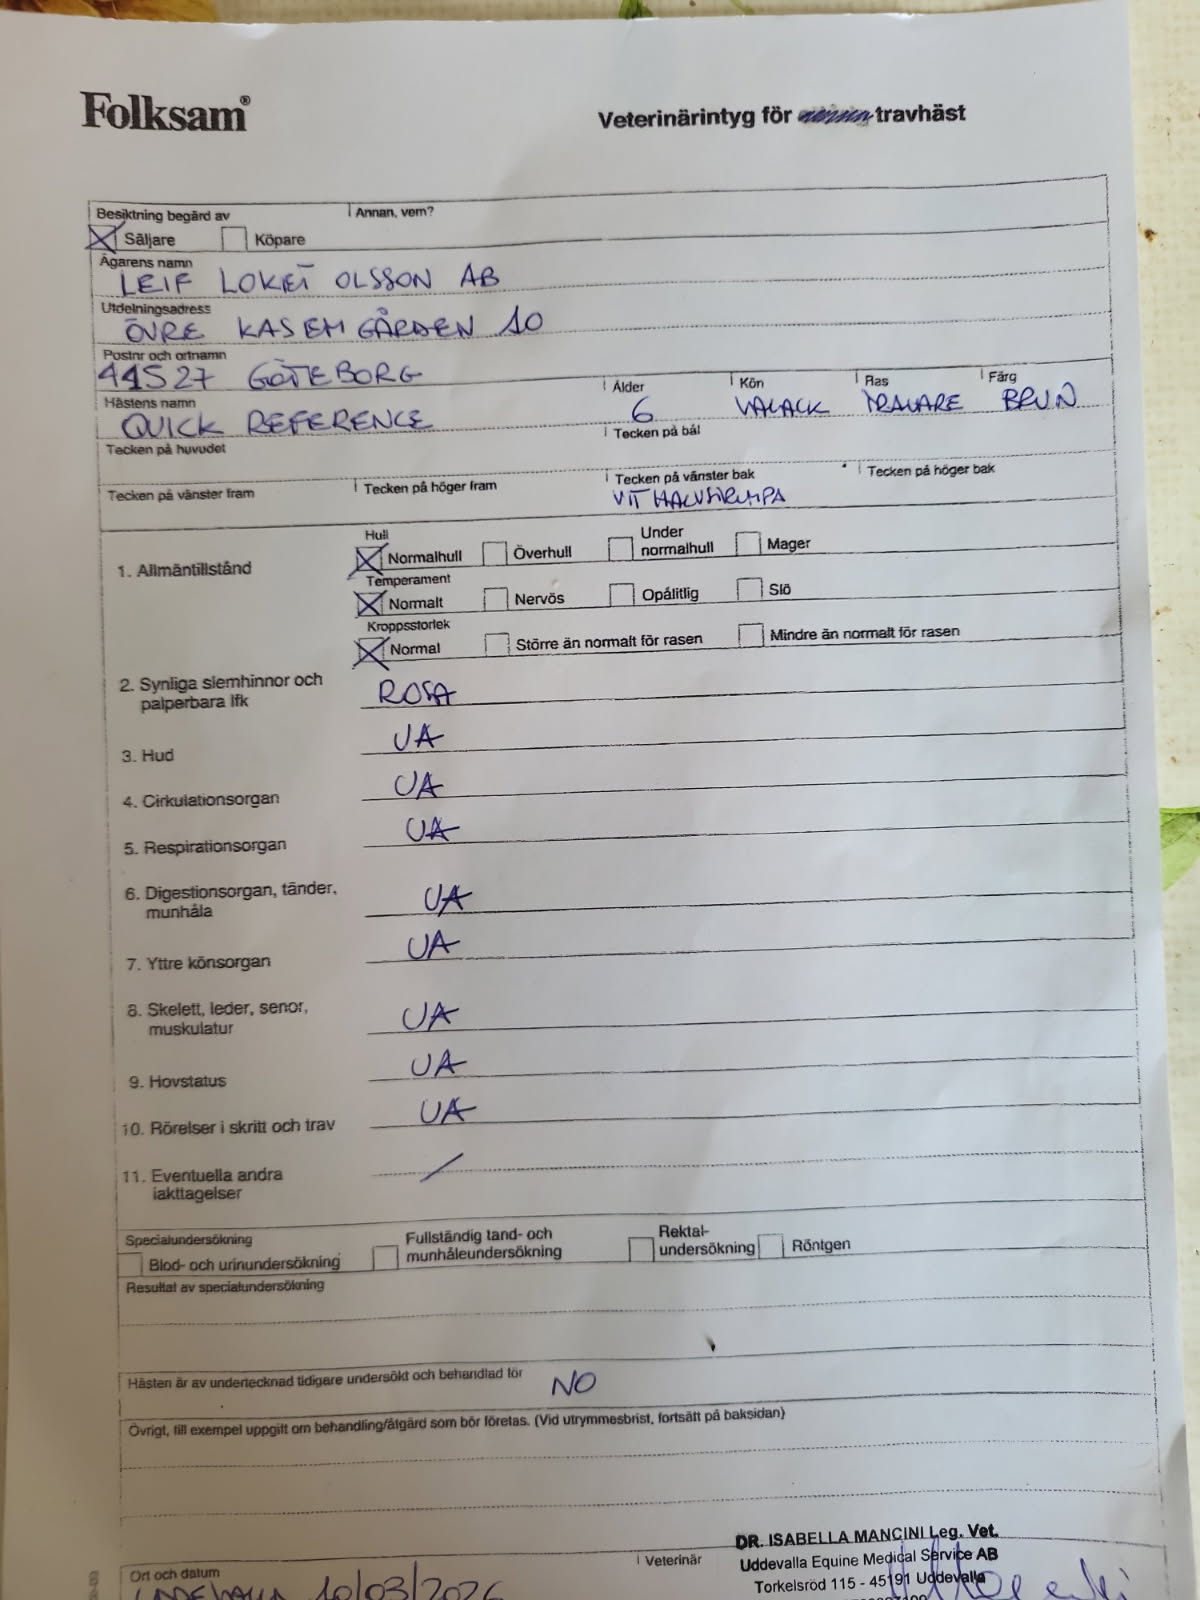 Folksam®
Veterinärintyg för travhäst
Besiktning begärd av
Annan, vem?
Säljare Köpare
Ägarens namn
LEIF LOKET OLSSON AB
Utdelningsadress
ÖVRE KASEMGÅRDEN 10
Postnr och ortnamn
44527 GÖTEBORG
Hästens namn Ålder Kön Ras Färg
QUICK REFERENCE 6 VALACK TRAVARE BRUN
Tecken på huvudet Tecken på bål
Tecken på vänster fram Tecken på höger fram Tecken på vänster bak Tecken på höger bak
VIT HALVSTRUMPA
1. Allmäntillstånd
Hull
Normalhull Överhull Under normalhull Mager
Temperament
Normalt Nervös Opålitlig Slö
Kroppsstorlek
Normal Större än normalt för rasen Mindre än normalt för rasen
2. Synliga slemhinnor och
palperbara lfk ROSA
3. Hud UA
4. Cirkulationsorgan UA
5. Respirationsorgan UA
6. Digestionsorgan, tänder,
munhåla UA
7. Yttre könsorgan UA
8. Skelett, leder, senor,
muskulatur UA
9. Hovstatus UA
10. Rörelser i skritt och trav UA
11. Eventuella andra
iakttagelser /
Specialundersökning
Blod- och urinundersökning Fullständig tand- och munhåleundersökning Rektal-undersökning Röntgen
Resultat av specialundersökning
Hästen är av undertecknad tidigare undersökt och behandlad för NO
Övrigt, till exempel uppgift om behandling/åtgärd som bör företas. (Vid utrymmesbrist, fortsätt på baksidan)
Ort och datum Veterinär
UDDEVALLA 10/03/2026
DR. ISABELLA MANCINI Leg. Vet.
Uddevalla Equine Medical Service AB
Torkelsröd 115 - 45191 Uddevalla